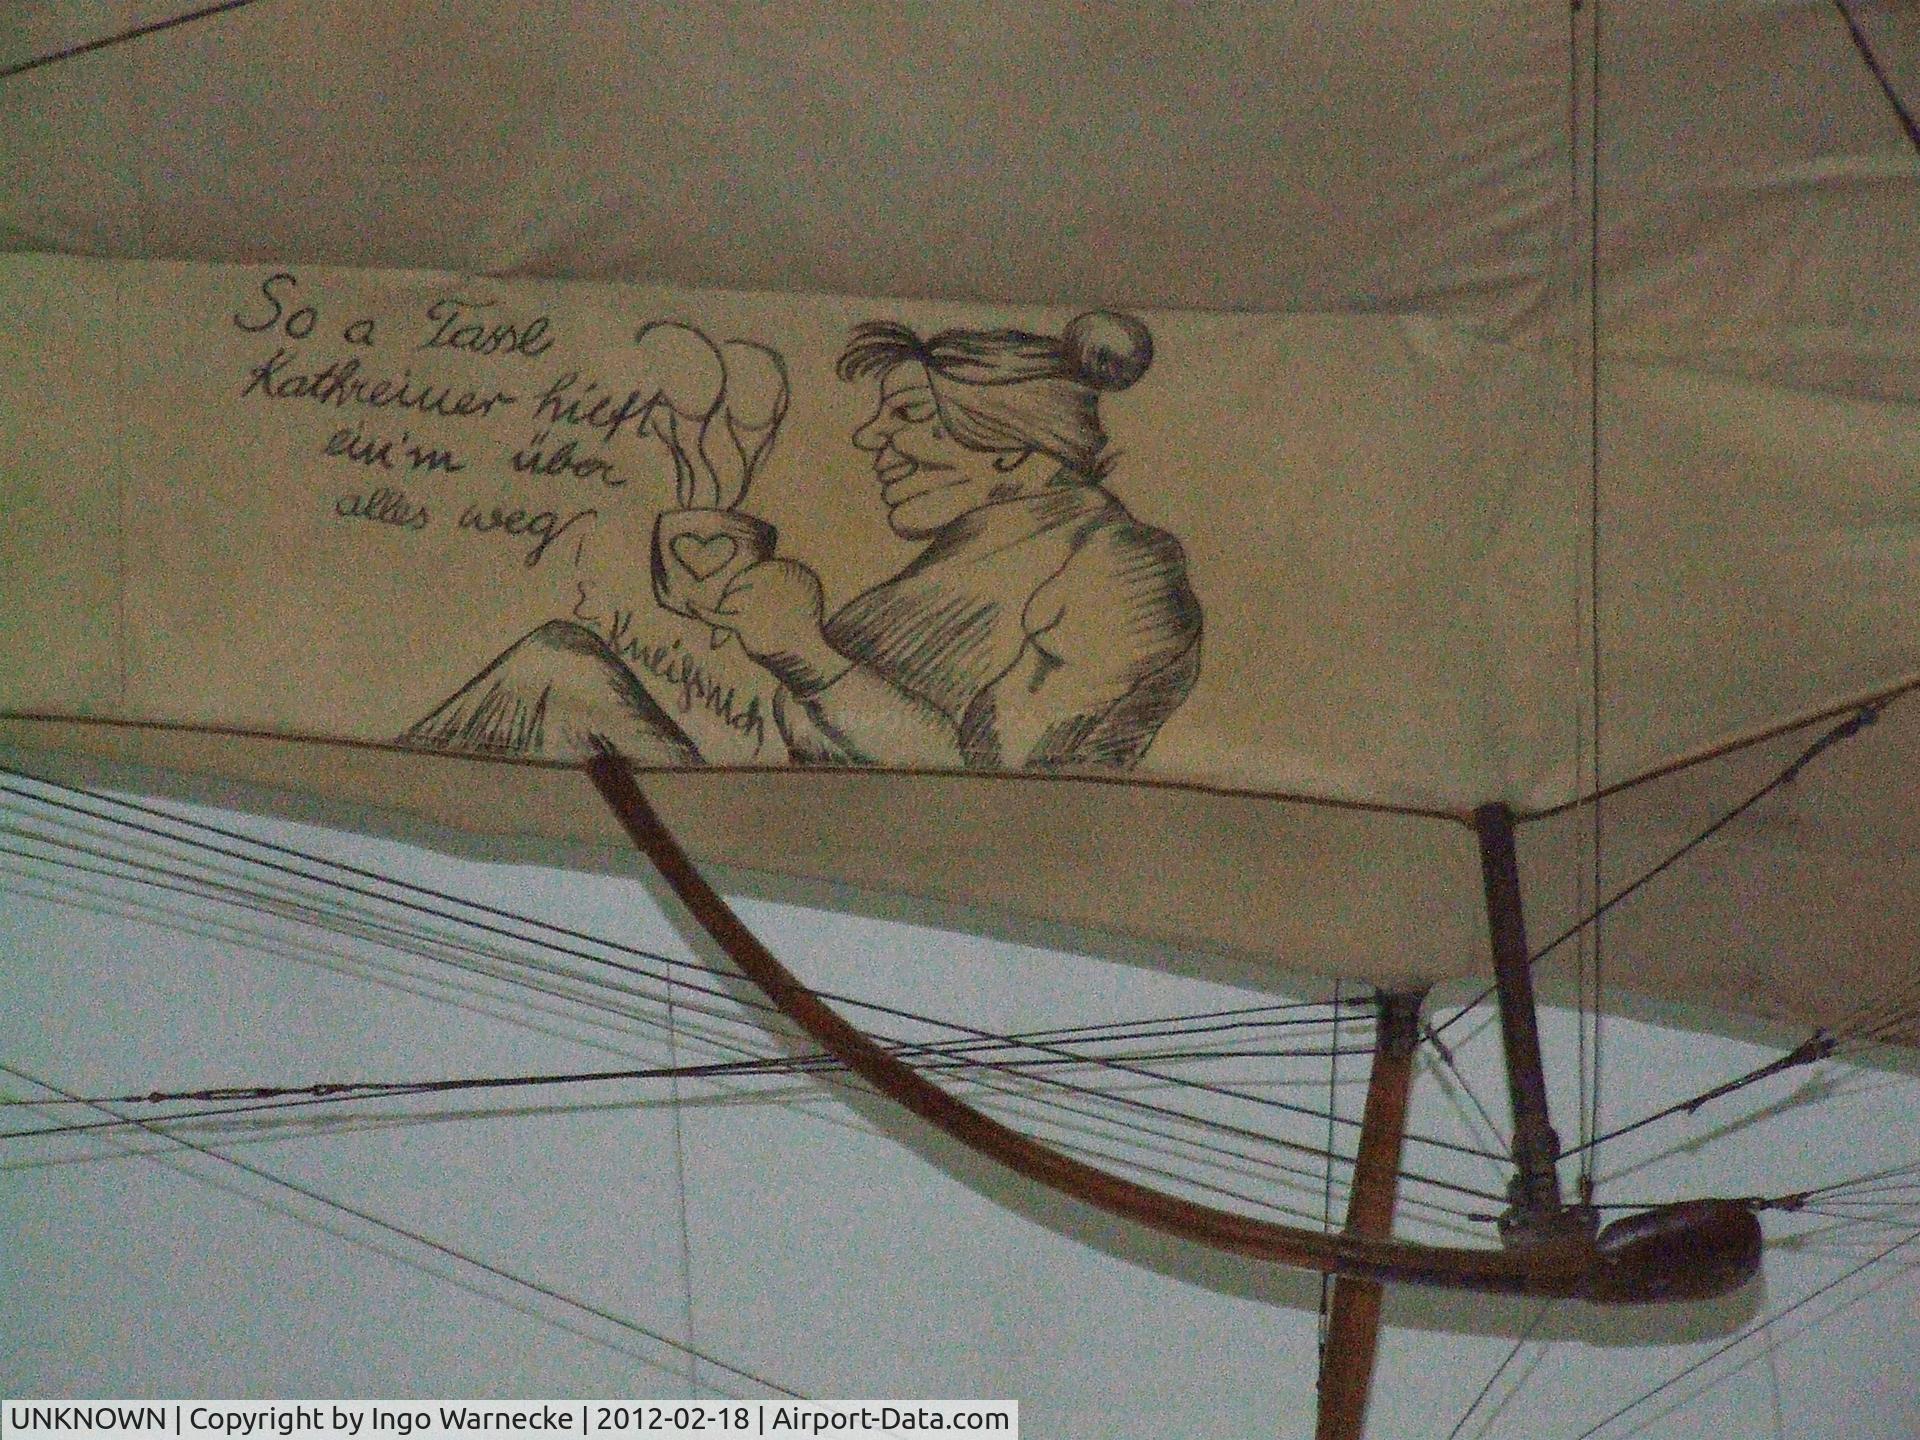 So a Tassl
Kathreiner hielft
ein'm über
alles weg
UNKNOWN | Copyright by Ingo Warnecke | 2012-02-18 | Airport-Data.com